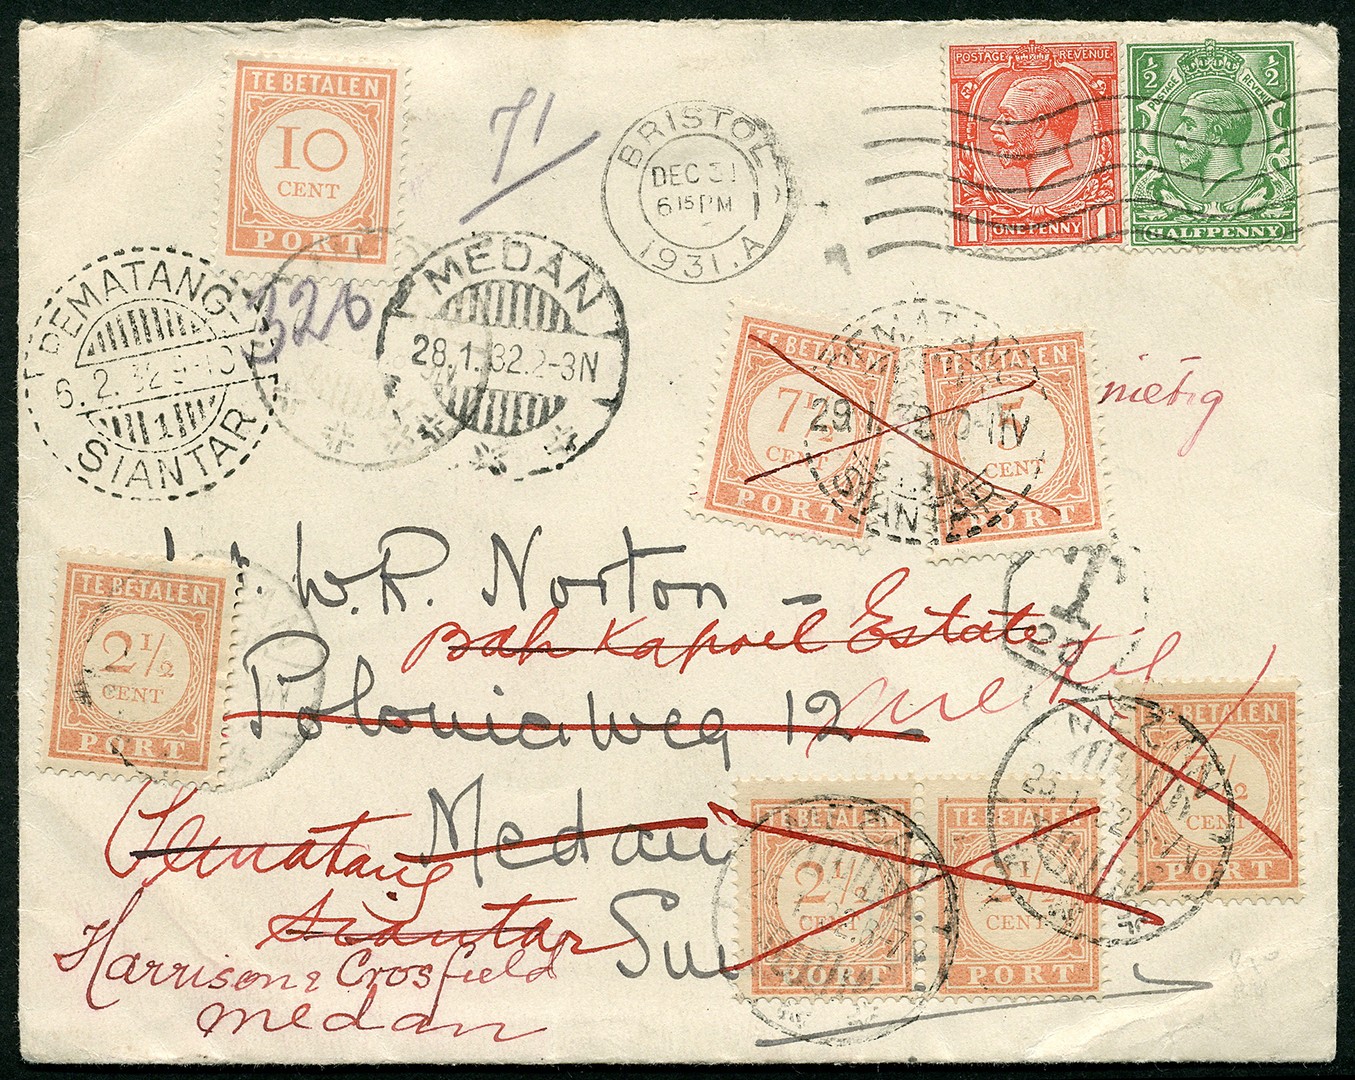 TE BETALEN
10
CENT
PORT
71
BRISTOL
DEC 31
6 15 PM
1931. A
POSTAGE REVENUE
1 ONE PENNY 1
½ ½
POSTAGE REVENUE
HALFPENNY
PEMATANG
6.2.32 9-10
1
SIANTAR
326
MEDAN
28.1.32.2-3N
TE BETALEN
7½
CENT
PORT
TE BETALEN
5
CENT
PORT
29.1
SIANTAR
nietig
T
20
W.R. Norton -
Bah Kapoel Estate
Poloniaweg 12
TE BETALEN
2½
CENT
PORT
Medan
Pematang
Siantar
Harrison & Crosfield
Medan
TE BETALEN
2½
CENT
PORT
TE BETALEN
2½
CENT
PORT
MEDAN
BETALEN
7½
CENT
PORT